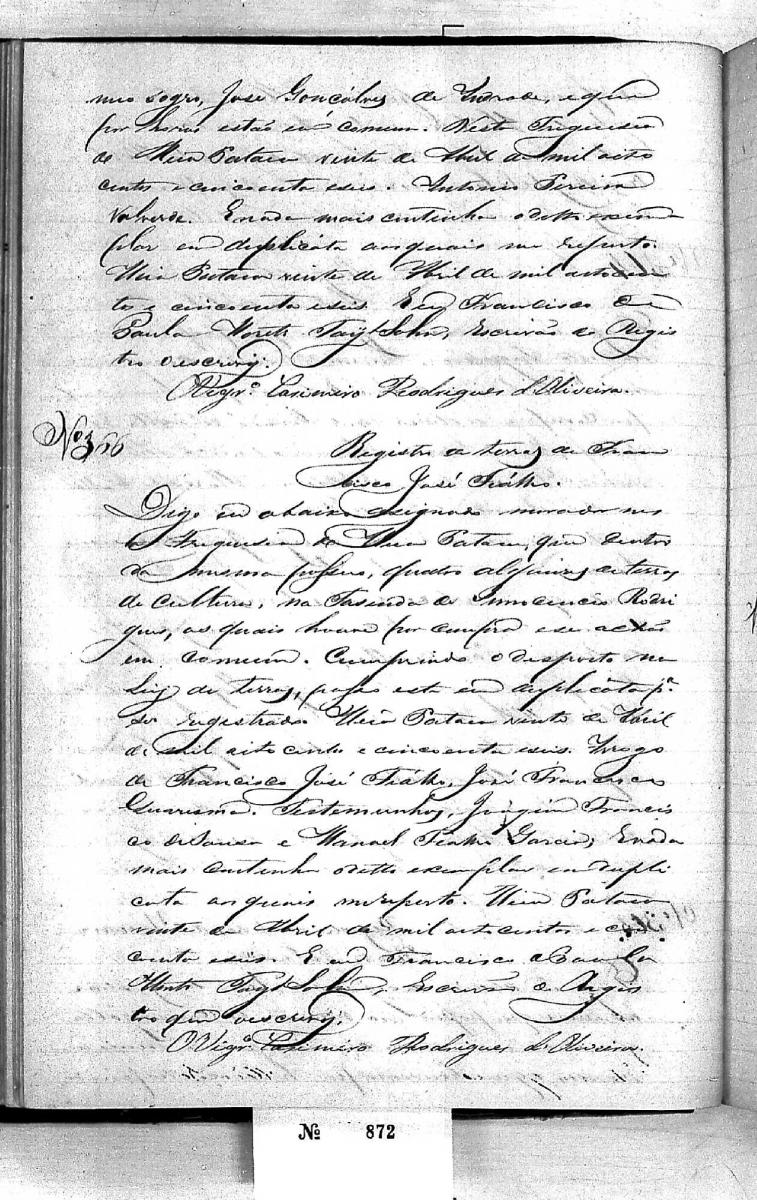 meo sogro, José Gonçalves de Andrade, e que
por hora estão em comum. Nesta Freguesia
de Meia Pataca vinte de Abril de mil oito
centos e cincoenta e seis. Antonio Pereira
Valverde. E nada mais continha o ditto exem
plar em duplicáta aos quais me reporto.
Meia Pataca vinte de Abril de mil oitocen
tos e cincoenta e seis. E eu Francisco de
Paula, Escrivão do Regis
tro o escrevy.
O Vigr.º Casimiro Rodrigues d'Oliveira.
Nº 366
Registro de terras de Fran
cisco José Fialho.
Digo eu abaixo assignado morador nes
ta Freguesia de Meia Pataca, que dentro
da mesma possuo, quatro alqueires de terras
de cultura, na Fasenda de Innocencio Rodri
gues, as quais houve por compra e se achão
em comum. Cumprindo o disposto na
Ley de terras, passo este em duplicáta p.ª
ser registrado. Meia Pataca vinte de Abril
de mil oito cento e cincoenta e seis. Arogo
de Francisco José Fialho, José Francisco
Quaresma. Testemunhas, Joaquim Francis
co de Souza e Manoel Fialho Garcia, E nada
mais continha o ditto exemplar em dupli
cata aos quais me reporto. Meia Pataca
vinte de Abril de mil oito centos e cin
coenta e seis. E eu Francisco de Paula
Escrivão do Regis
tro que o escrevy.
O Vigr.º Casimiro Rodrigues d'Oliveira.
Nº 872